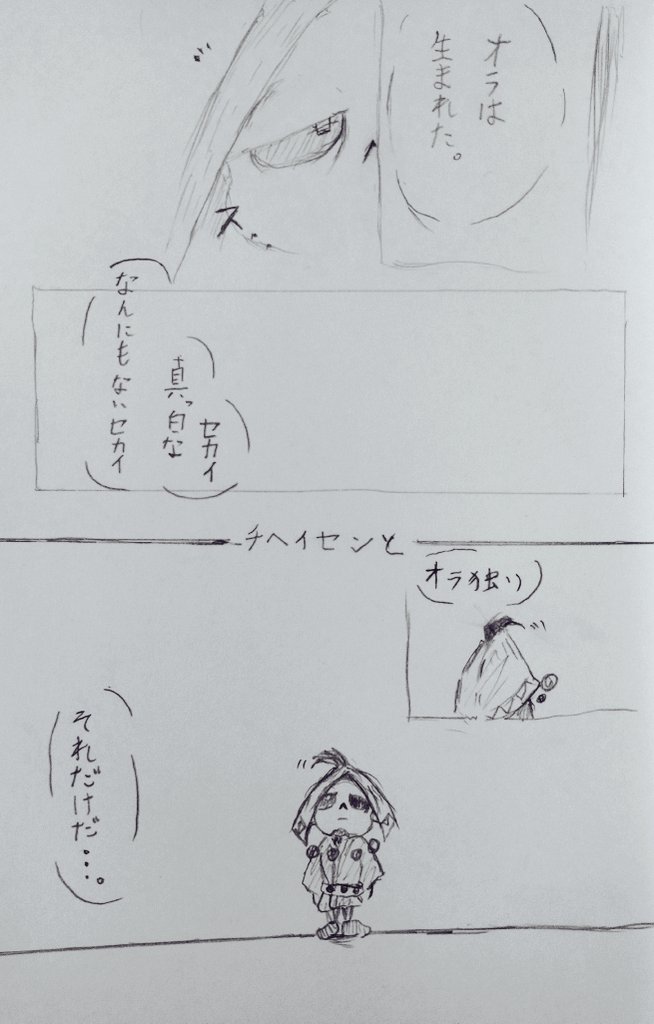 オラは
生まれた。
ス..
セカイ
真っ白な
なんにもないセカイ
チヘイセンと
オラ独り
それだけだ・・・。